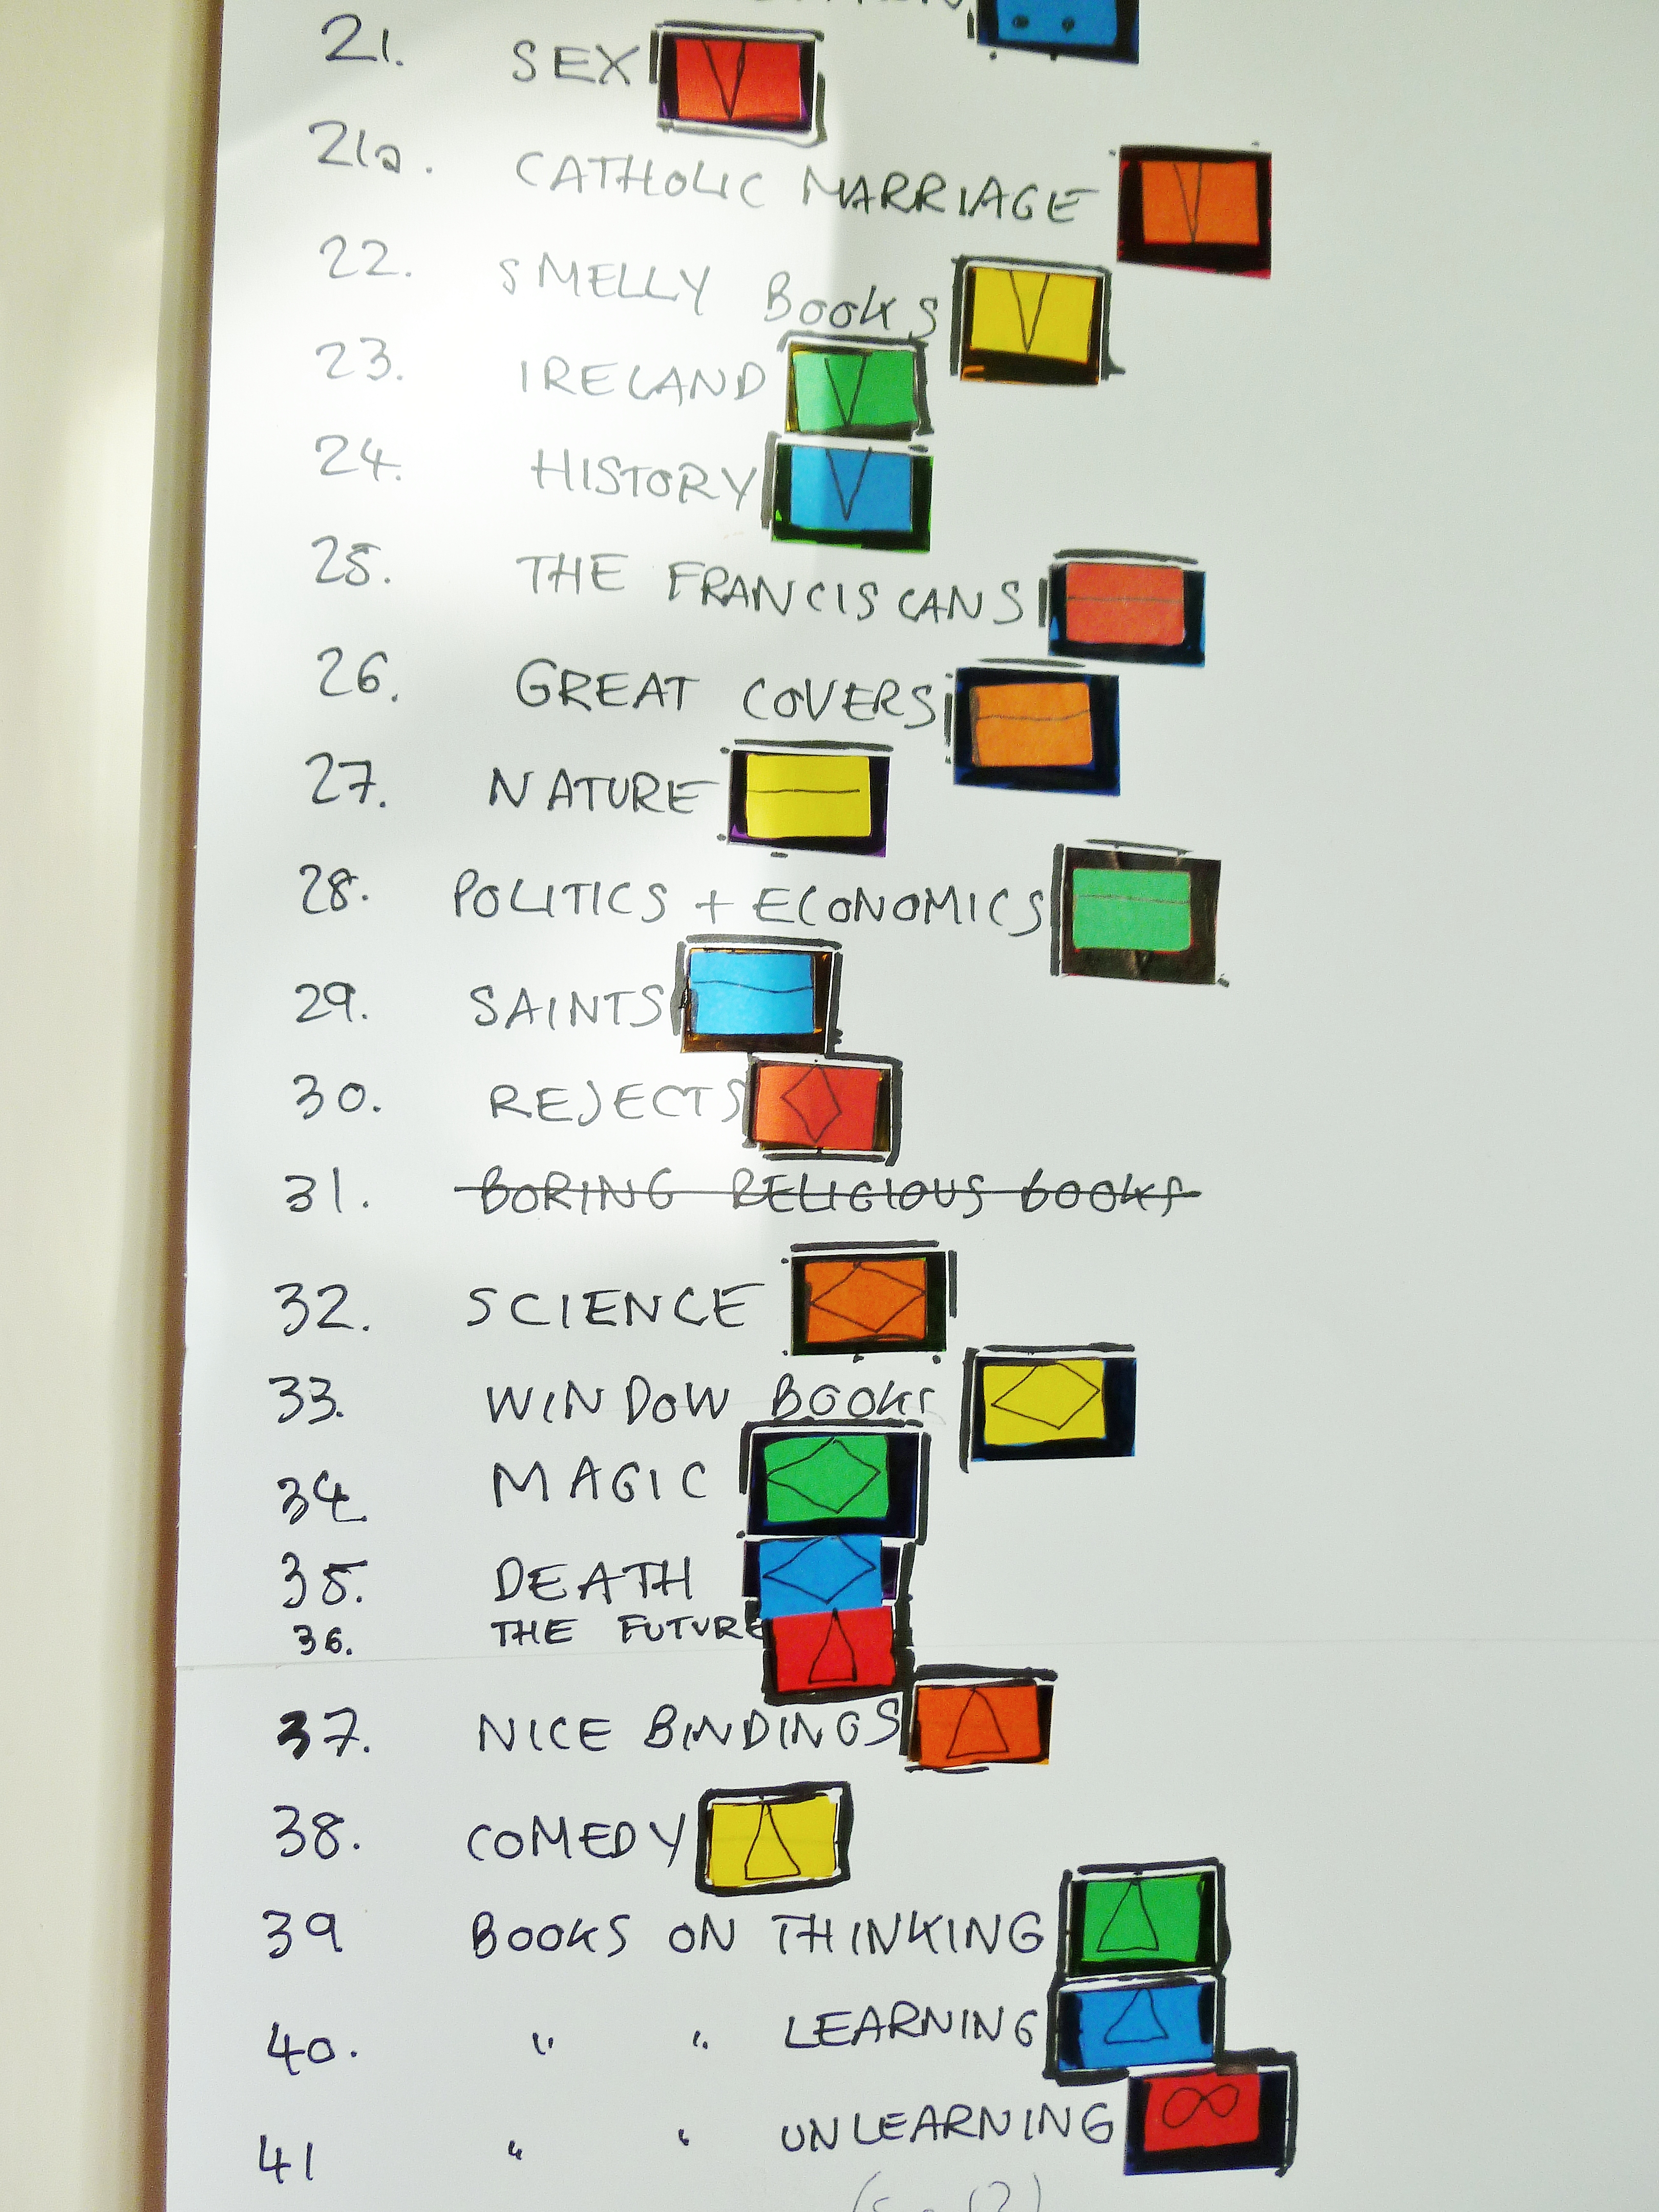 21. SEX
21a. CATHOLIC MARRIAGE
22. SMELLY BOOKS
23. IRELAND
24. HISTORY
25. THE FRANCISCANS
26. GREAT COVERS
27. NATURE
28. POLITICS + ECONOMICS
29. SAINTS
30. REJECTS
31. BORING RELIGIOUS BOOKS
32. SCIENCE
33. WINDOW BOOKS
34. MAGIC
35. DEATH
36. THE FUTURE
37. NICE BINDINGS
38. COMEDY
39 BOOKS ON THINKING
40. " " LEARNING
41 " " UNLEARNING